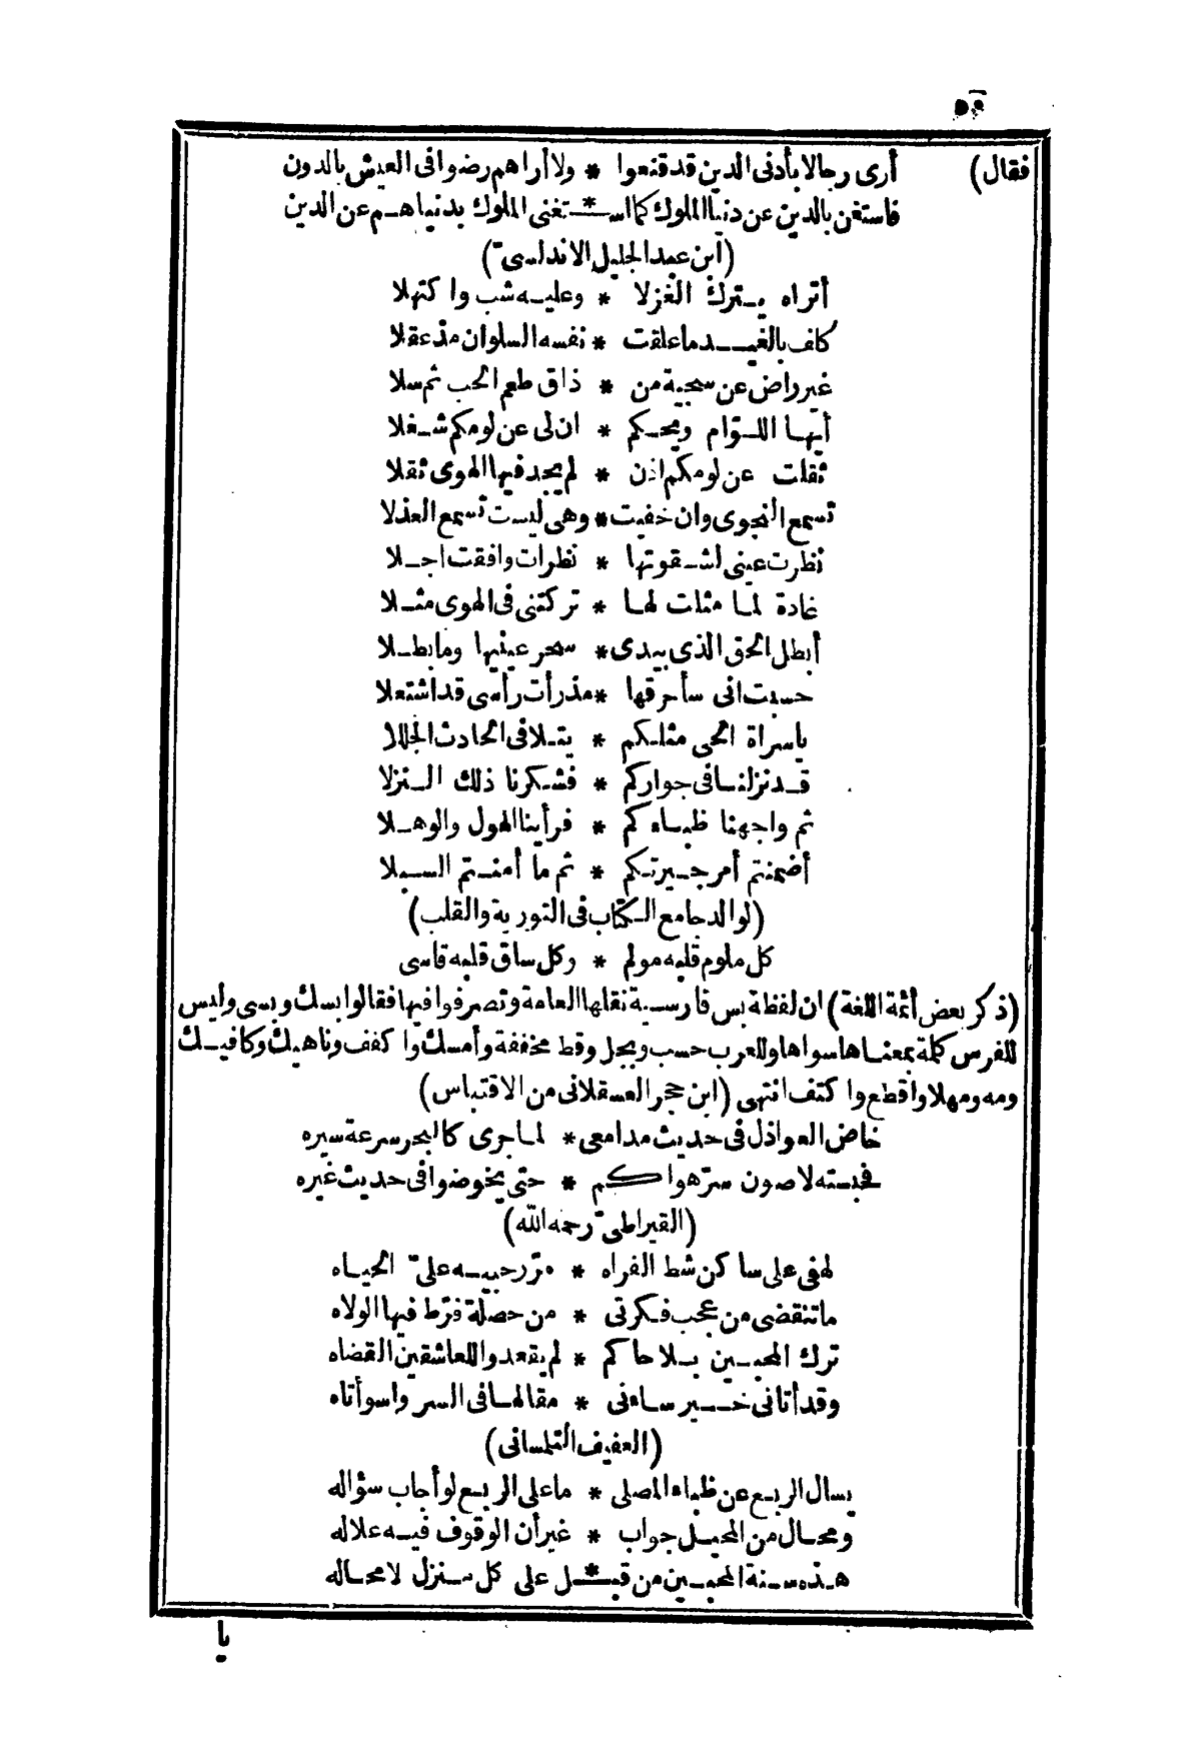 ٥٢
فقال) أرى رجالا بأدنى الدين قد قنعوا * ولا أراهم رضوا فى العيش بالدون
فاستغن بالدين عن دنيا الملوك كما اســ*ـتغنى الملوك بدنياهم عن الدين
(ابن عبد الجليل الاندلسىّ)
أتراه يترك الغزلا * وعليه شب واكتهلا
كلف بالغيد ما علقت * نفسه السلوان مذ عقلا
غير راض عن سجية من * ذاق طعم الحب ثم سلا
أيها اللوّام ويحكم * ان لى عن لومكم شغلا
ثقلت عن لومكم اذن * لم يجد فيها الهوى ثقلا
تسمع النجوى وان خفيت * وهى ليست تسمع العذلا
نظرت عينى لشقوتها * نظرات وافقت اجلا
غادة لمّا مثلت لها * تركتنى فى الهوى مثلا
أبطل الحق الذى بيدى * سحر عينيها وما بطلا
حسبت انى سأحرقها * مذ رأت رأسى قد اشتعلا
ياسراة الحى مثلكم * يتلافى الحادث الجللا
قد نزلنا فى جواركم * فشكرنا ذلك النزلا
ثم واجهنا ظباءكم * فرأينا الهول والوهلا
أضمنتم أمر جيرتكم * ثم ما أمنتم السبلا
(لوالد جامع الكتاب فى التورية والقلب)
كل ملوم قلبه مولم * وكل ساق قلبه قاسى
(ذكر بعض أئمة اللغة) ان لفظة بس فارسية نقلها العامة وتصرفوا فيها فقالوا بسك وبسى وليس
للفرس كلمة بمعناها سواها وللعرب حسب وبجل وقط مخففة وأمسك واكفف وناهيك وكافيك
ومه ومهلا واقطع واكتف انتهى (ابن حجر العسقلانى من الاقتباس)
خاض العواذل فى حديث مدامعى * لما جرى كالبحر سرعة سيره
فحبسته لاصون سرّ هواكم * حتى يخوضوا فى حديث غيره
(القيراطىّ رحمه الله)
لهفى على ساكن شط الفراه * مرّر حبيه علىّ الحياه
ما تنقضى من عجب فكرتى * من خصلة فرّط فيها الولاه
ترك المحبين بلا حاكم * لم يقعدوا للعاشقين القضاه
وقد أتانى خبر ساءنى * مقالها فى السر واسوأتاه
(العفيف التلسانى)
يسال الربع عن ظباء المصلى * ما على الربع لو أجاب سؤاله
ومحال من المحيل جواب * غير أن الوقوف فيه علاله
هذه سنة المحبين من قبـ*ـل على كل منزل لا محاله
يا